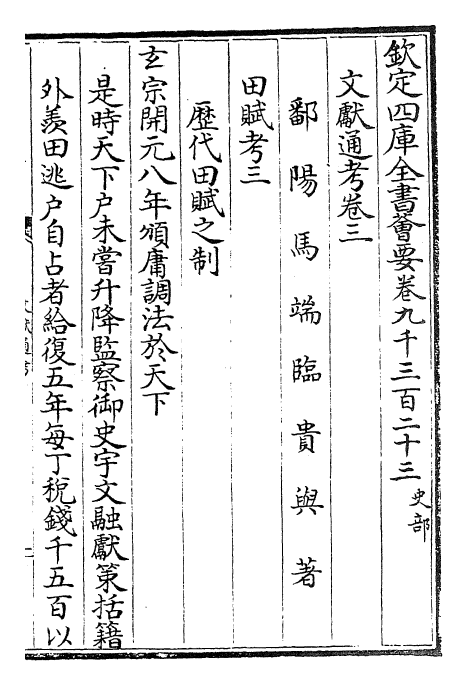 欽定四庫全書薈要卷九千三百二十三 史部
文獻通考卷三
鄱陽馬端臨貴與著
田賦考三
歷代田賦之制
玄宗開元八年頒庸調法於天下
是時天下户未嘗升降監察御史宇文融獻策括籍
外羨田逃户自占者給復五年每丁稅錢千五百以